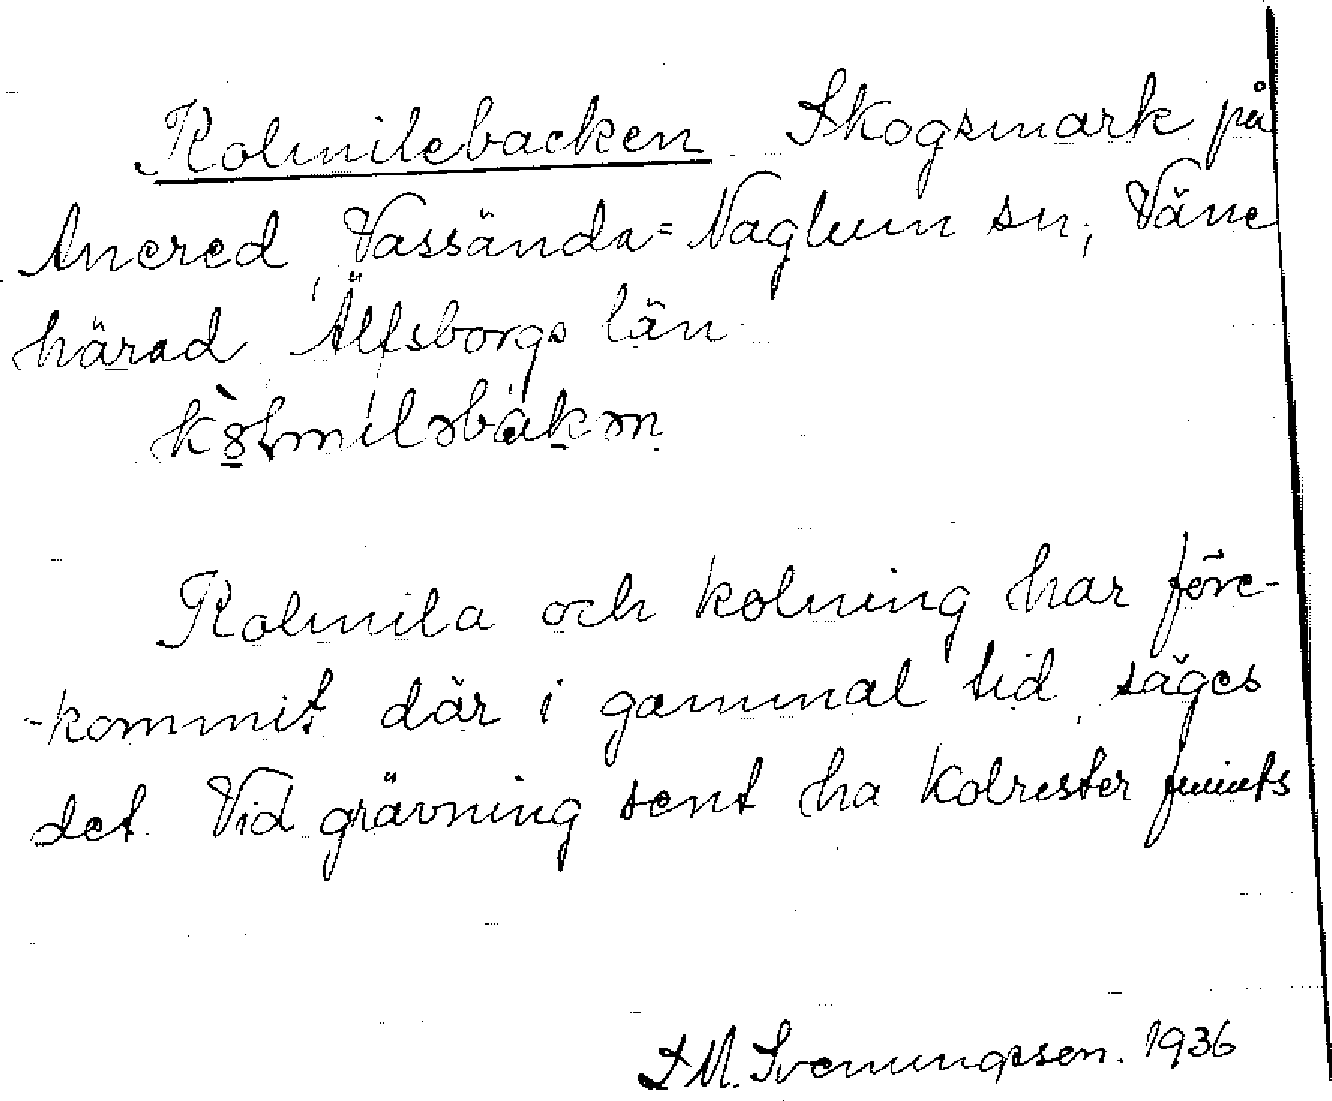 Kolmilebacken Skogsmark på
Anered, Vassända=Naglum sn, Väne
härad Älfsborgs län
Kolmila och kolning har före-
-kommit där i gammal tid, säges
det. Vid grävning sent ha kolrester funnits
S M. Svenungsson. 1936